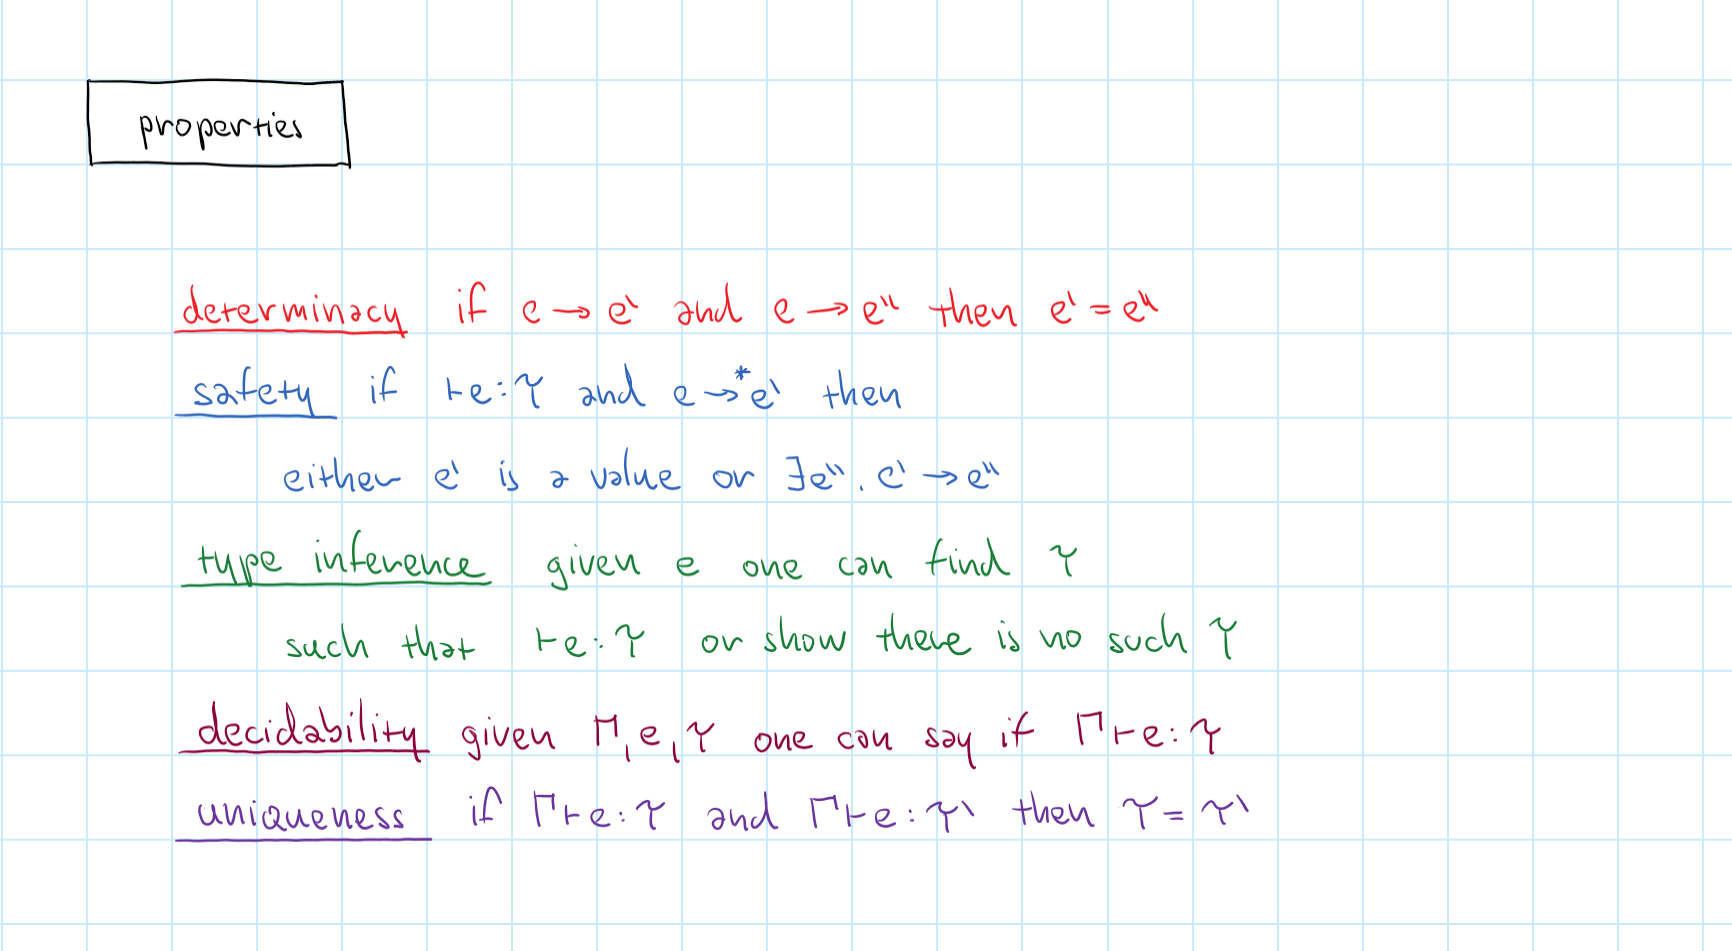 properties
determinacy if e → e' and e → e'' then e' = e''
safety if ⊢e:τ and e →* e' then
either e' is a value or ∃e''. e' → e''
type inference given e one can find τ
such that ⊢e:τ or show there is no such τ
decidability given Γ, e, τ one can say if Γ⊢e:τ
uniqueness if Γ⊢e:τ and Γ⊢e:τ' then τ = τ'